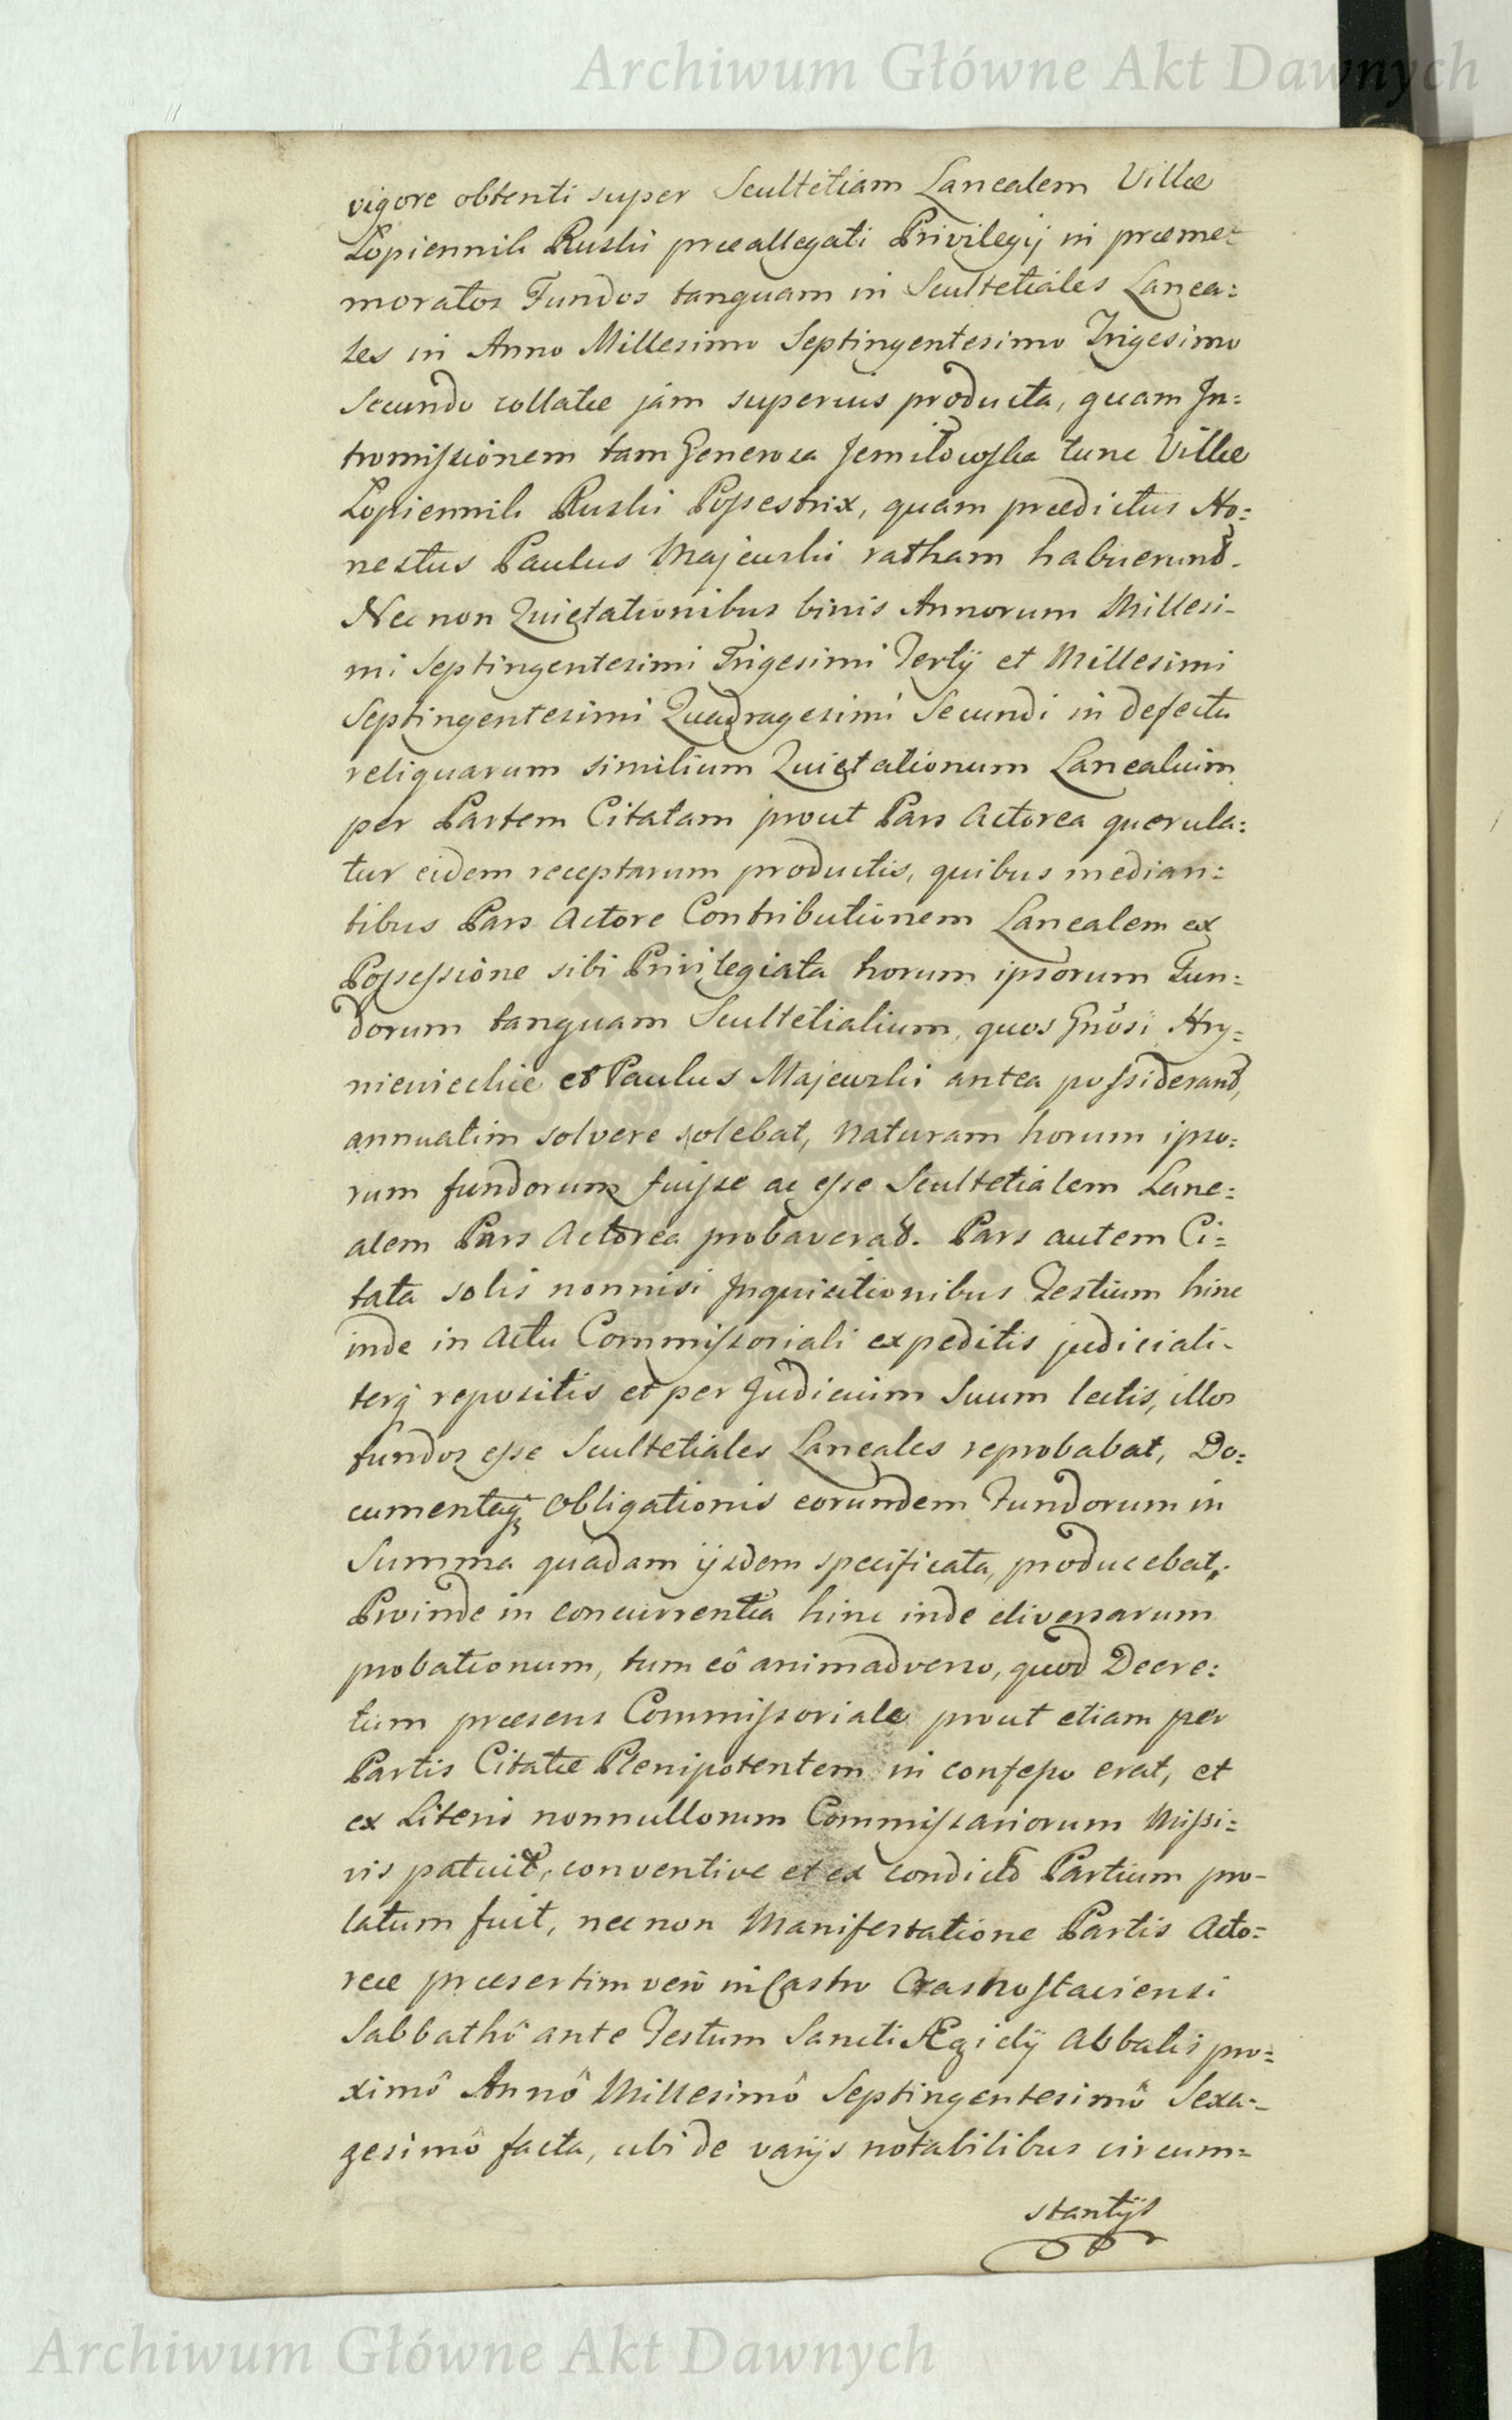 Archiwum Główne Akt Dawnych
vigore obtenti super Scultetiam Lanealem Villæ
Łopiennik Ruski præallegati Privilegij in præme=
moratos Fundos tanquam in Scultetiales Lanea=
les in Anno Millesimo Septingentesimo Trigesimo
Secundo collatæ jam superius producta, quam In=
tromissionem tam Generosa Jemiłowska tunc Villæ
Łopiennik Ruski Possestrix, quam prædictus Ho=
nestus Paulus Majewski ratham habuerunt.
Nec non Quietationibus binis Annorum Millesi-
mi Septingentesimi Trigesimi Tertij et Millesimi
Septingentesimi Quadragesimi Secundi in defectu
reliquarum similium Quietationum Lanealium
per Partem Citatam prout Pars Actorea querula=
tur eidem receptarum productis, quibus median=
tibus Pars Actore Contributionem Lanealem ex
Possessione sibi Privilegiata horum ipsorum Fun=
dorum tanquam Scultetialium, quos Gnosi Hry=
niewieckie et Paulus Majewski antea possiderant,
annuatim solvere solebat, Naturam horum ipso=
rum fundorum fuisse ac esse Scultetialem Lane=
alem Pars Actorea probaverat. Pars autem Ci=
tata solis nonnisi Inquisitionibus Testium hinc
inde in Actu Commissoriali expeditis judiciali-
terq repositis et per Judicium Suum lectis, illos
fundos esse Scultetiales Laneales reprobabat, Do=
cumentaq Obligationis eorundem Fundorum in
Summa quâdam ijsdem specificata, producebat.
Proinde in concurrentia hinc inde diversarum
probationum, tum eô animadverso, quod Decre=
tum præsens Commissoriale prout etiam per
Partis Citatæ Plenipotentem in confesso erat, et
ex Literis nonnullorum Commissariorum Missi=
vis patuit, conventive et ex condicto Partium pro-
latum fuit, nec non Manifestatione Partis Acto=
reæ præsertim verò in Castro Crasnostaviensi
Sabbathô ante Festum Sancti Ægidij Abbatis pro=
ximô Annô Millesimô Septingentesimô Sexa-
gesimô facta, ubi de varijs notabilibus circum=
stantijs
Archiwum Główne Akt Dawnych